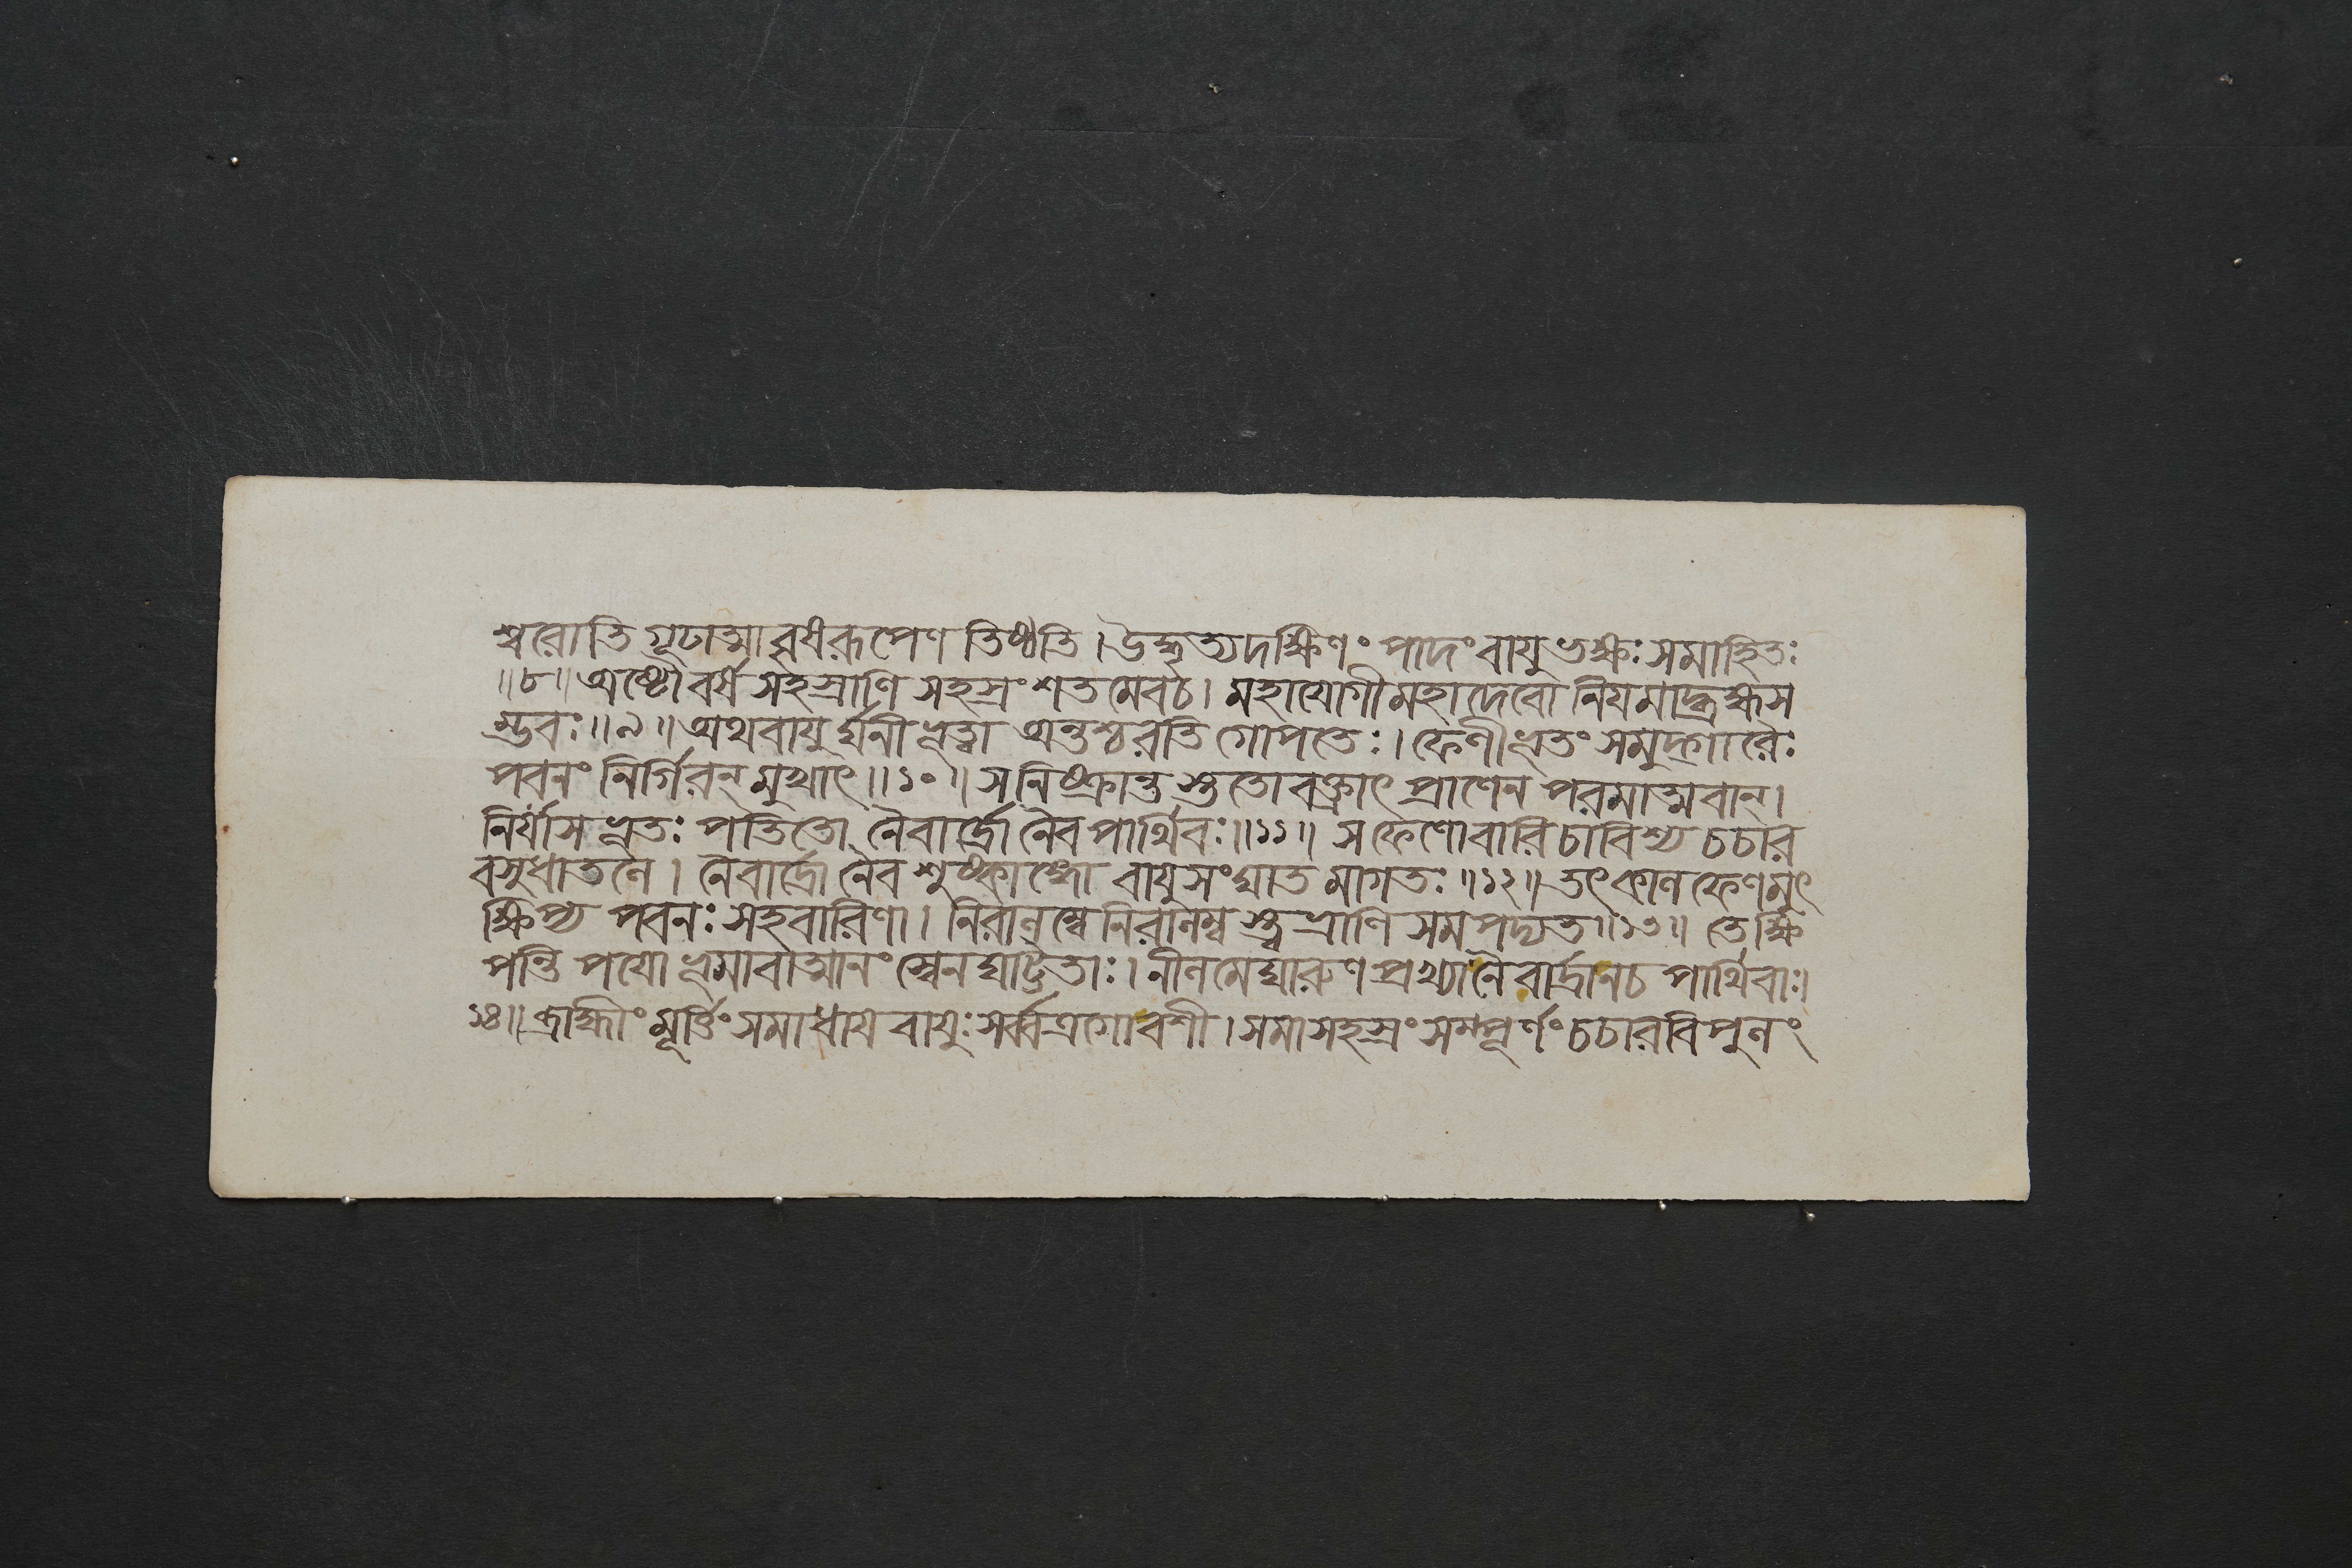 শ্বরোতি গূঢাত্মা বৃষরূপেণ তিষ্ঠতি। উদ্ধৃত্যদক্ষিণং পাদং বায়ুভক্ষঃ সমাহিতঃ
॥৮॥ অষ্টৌ বর্ষ সহস্রাণি সহস্রং শতমেবচ। মহাযোগী মহাদেবো নিয়মাদ্ব্রহ্মস
ম্ভবঃ॥৯॥ অথবায়ুর্ঘনীভূত্বা অন্তশ্চরতি গোপতেঃ। ফেণীভূতং সমুদ্গারৈঃ
পবনং নির্গিরন্ মুখাৎ॥১০॥ সনিষ্ক্রান্তস্ততো বক্ত্রাৎ প্রাণেন পরমাত্মবান্।
নির্যাস ভূতঃ পতিতো নৈবার্দ্রো নৈব পার্থিবঃ॥১১॥ স ফেণোবারি চাবিশ্য চচার
বসুধাতলে। নৈবার্দ্রো নৈব শুষ্কাঙ্গো বায়ুসংঘাত মাগতঃ॥১২॥ তৎ কাল ফেণমুৎ
ক্ষিপ্য পবনঃ সহবারিণা। নিরালম্বে নিরালম্ব স্ত্বভ্রাণি সমপদ্যত॥১৩॥ তে ক্ষি
পন্তি পয়ো ভূমাবাত্মানং স্বেনঘট্টিতাঃ। নীলমেঘারুণ প্রখ্যা নৈবার্দ্রা নচ পার্থিবাঃ।
১৪॥ ব্রাহ্মীং মূর্ত্তিং সমাধায় বায়ুঃ সর্ব্বত্রগোবশী। সমাসহস্রং সম্পূর্ণং চচারবিপুলং